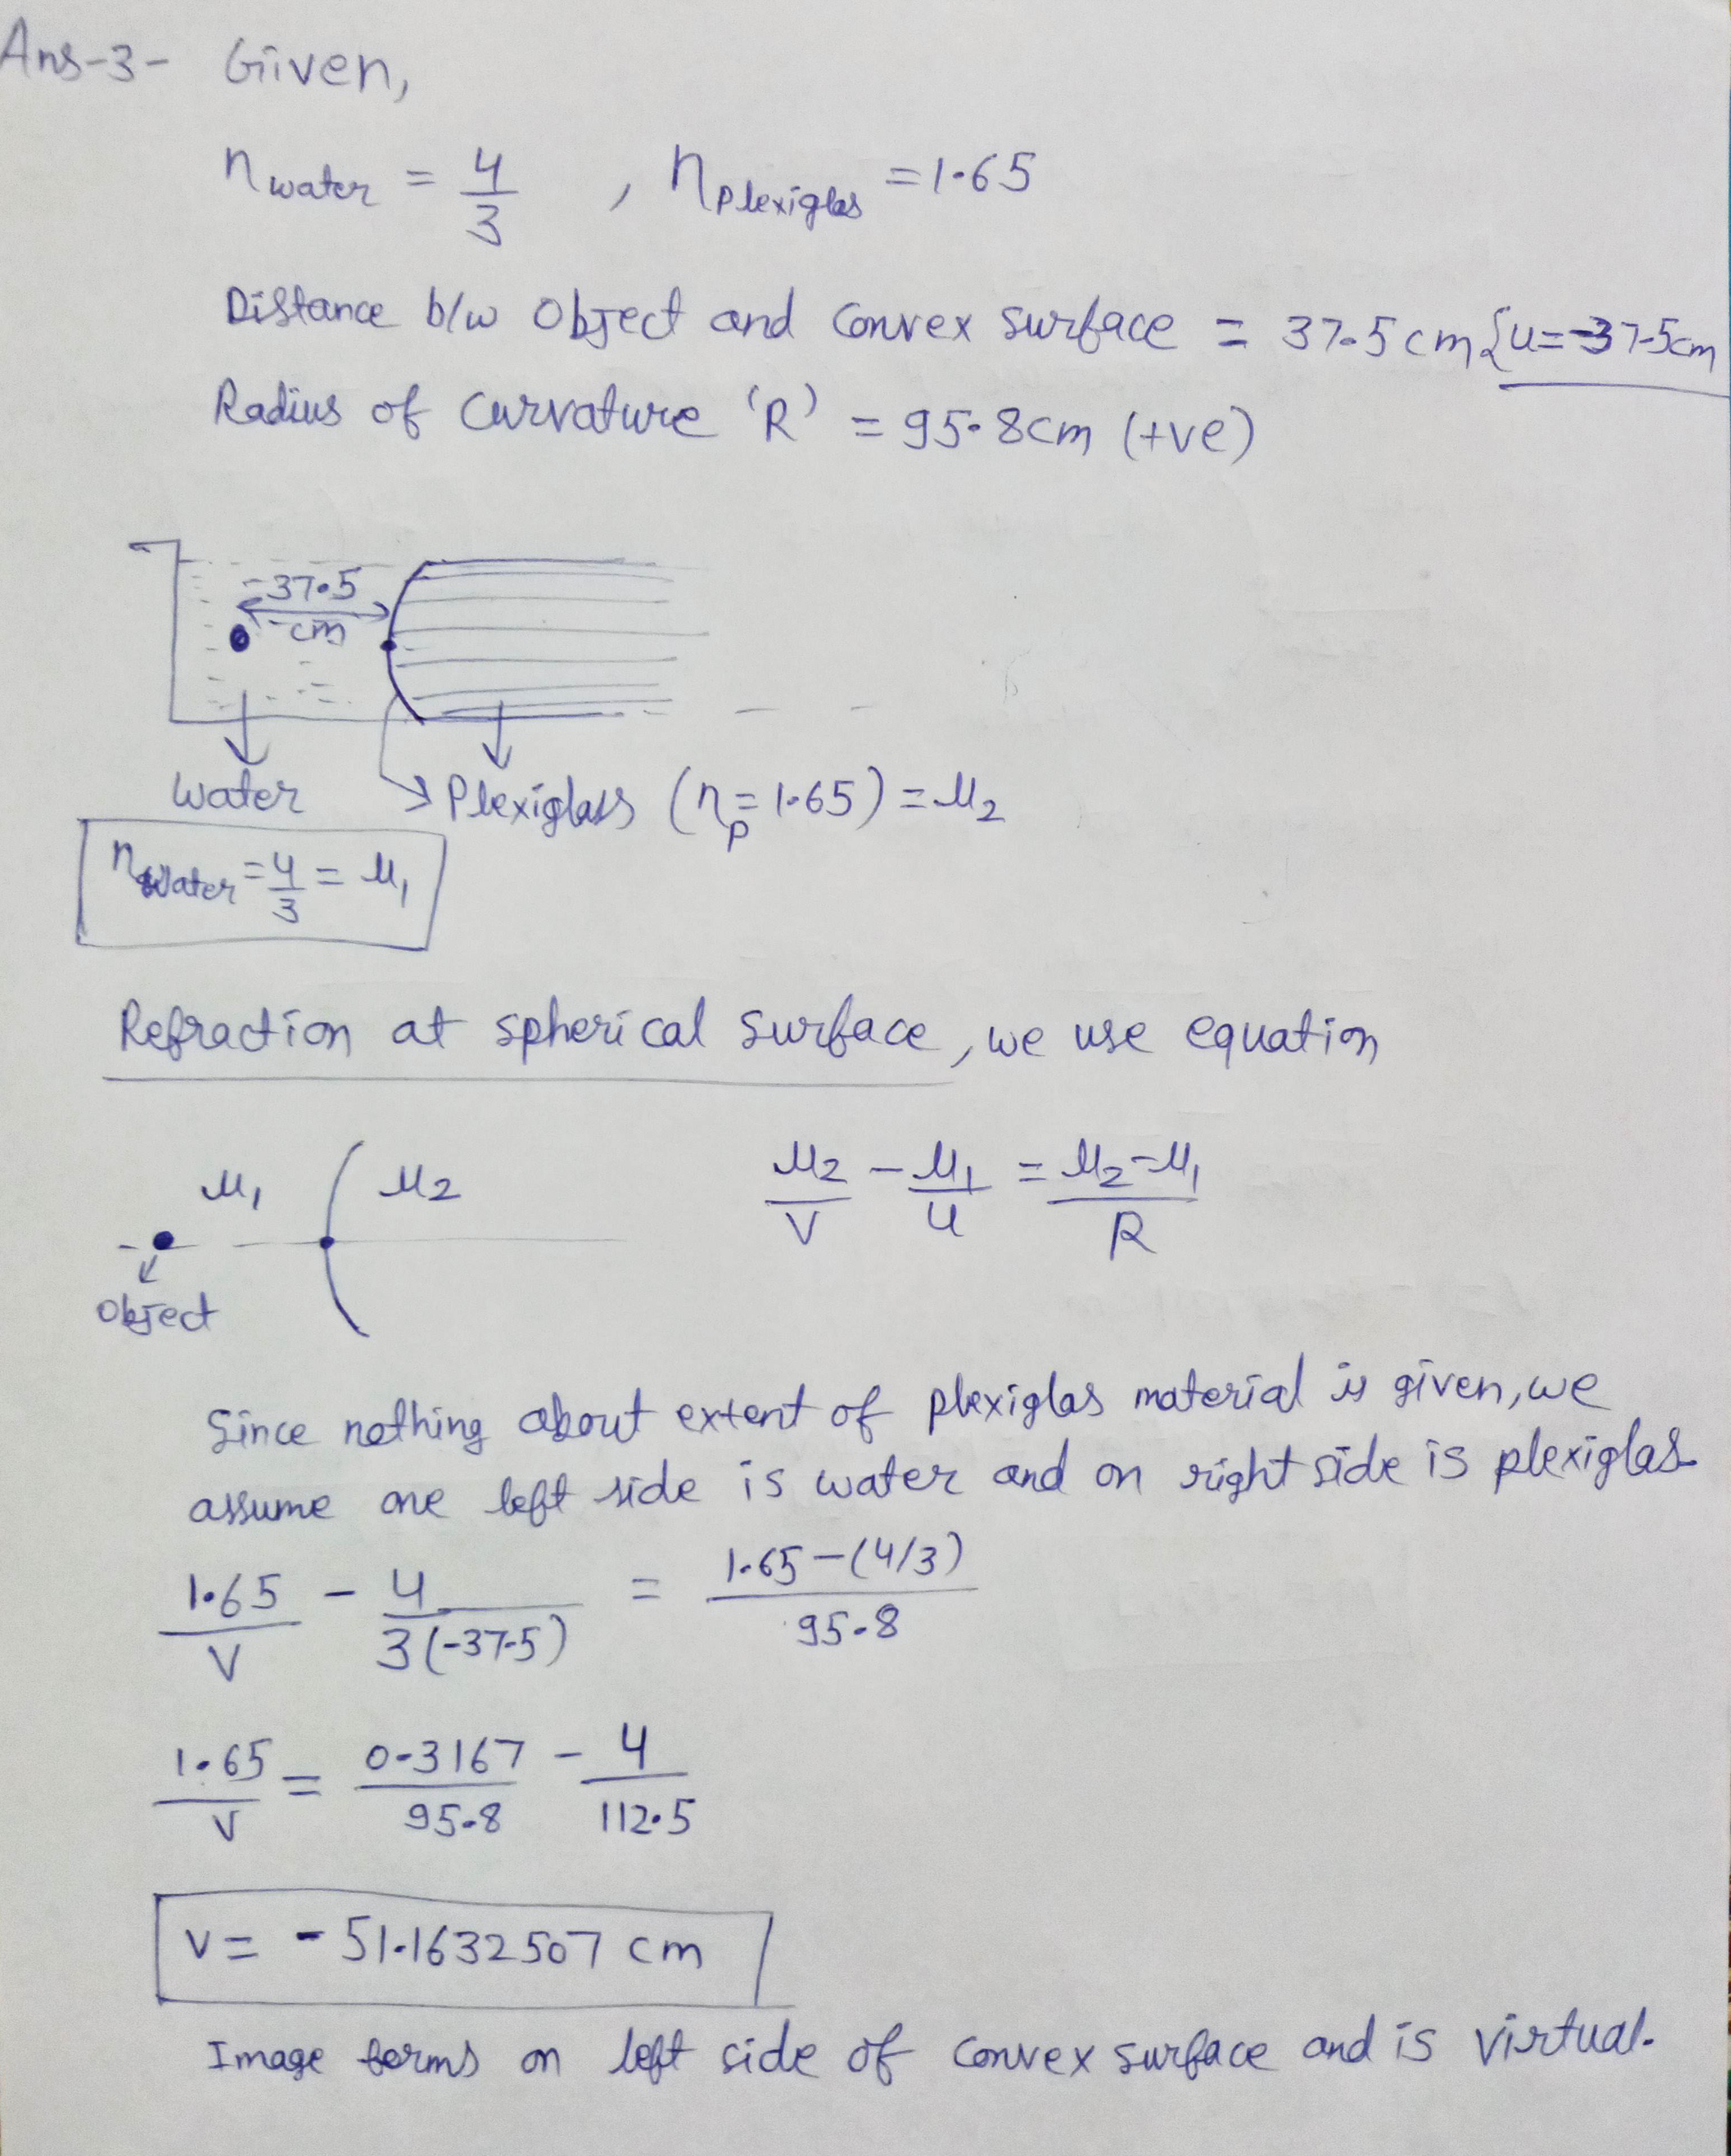 Ans-3- Given,
n water = 4/3 , n Plexiglas = 1.65
Distance b/w Object and Convex surface = 37.5cm {u=-37.5cm
Radius of Curvature 'R' = 95.8cm (+ve)
-37.5
cm
Water
Plexiglass (np=1.65) = μ2
nwater = 4/3 = μ1
Refraction at spherical surface, we use equation
μ1 μ2
Object
μ2/v - μ1/u = μ2-μ1/R
Since nothing about extent of plexiglas material is given, we
assume one left side is water and on right side is plexiglas.
1.65/v - 4/3(-37.5) = 1.65-(4/3)/95.8
1.65/v = 0.3167/95.8 - 4/112.5
v = -51.1632507 cm
Image forms on left side of convex surface and is virtual.